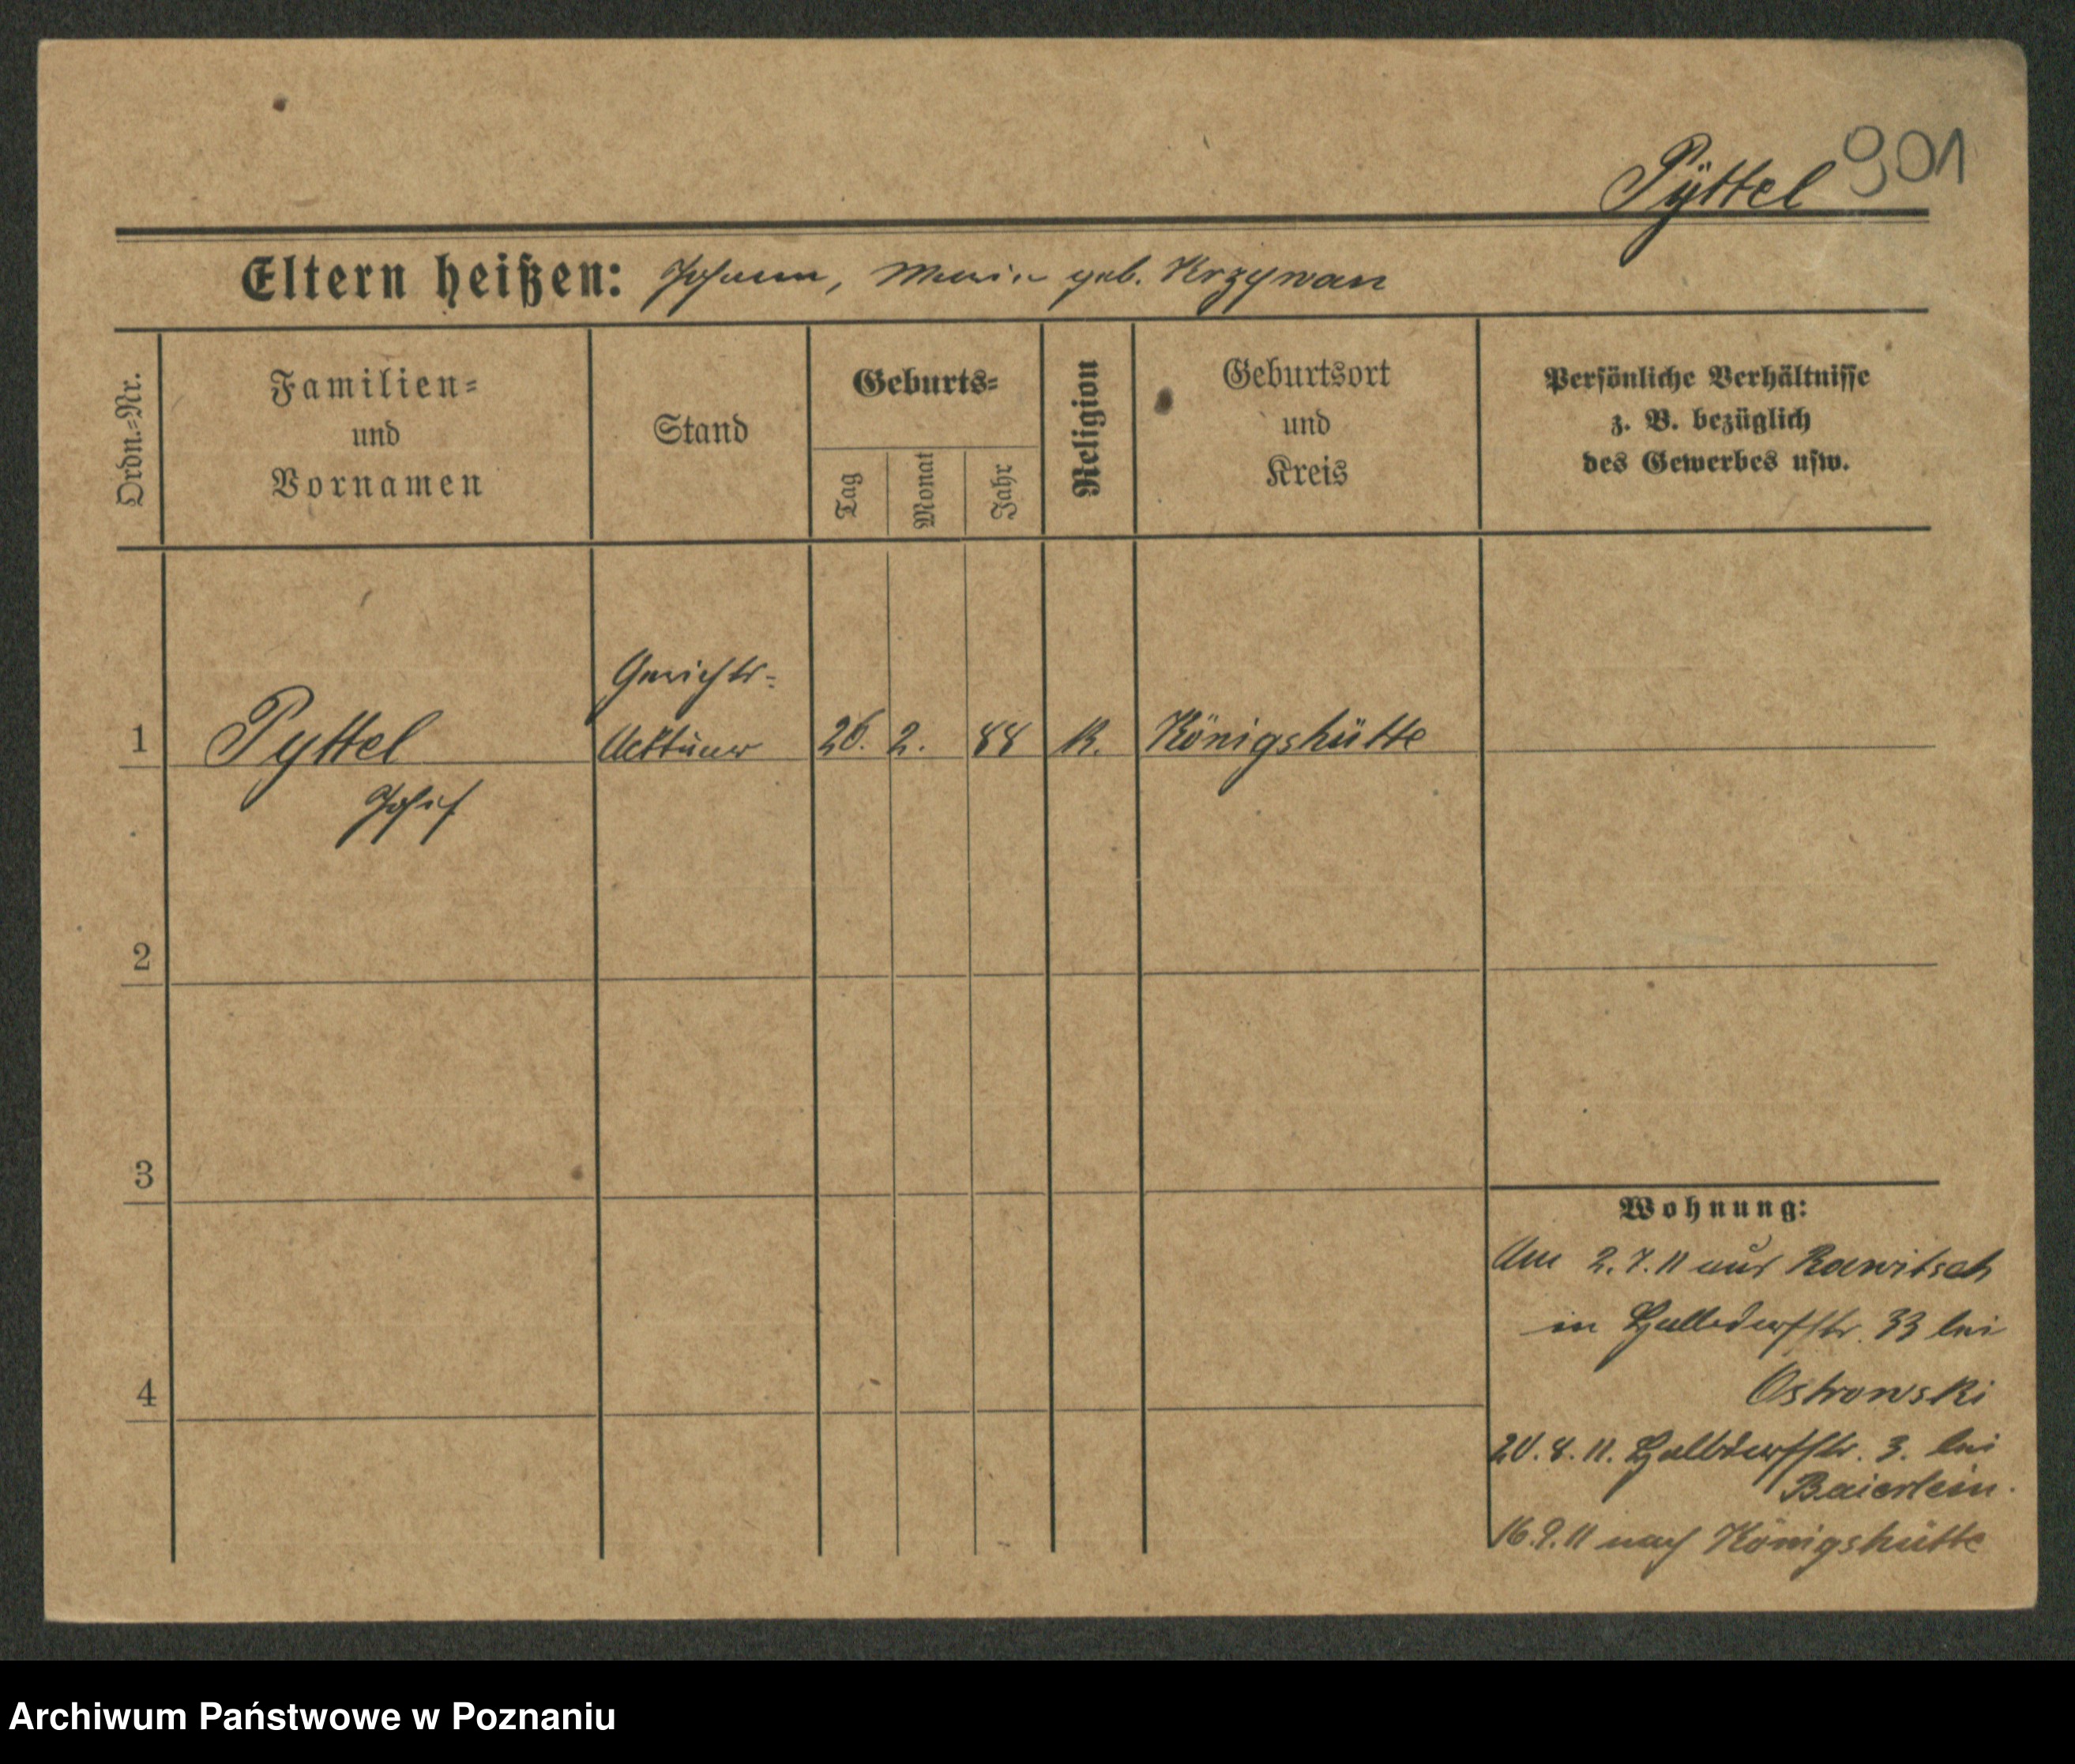 901
Pÿttel
Eltern heißen: Johann, Maria geb. Krzywan
Ordn.-Nr.
Familien-
und
Vornamen
Stand
Geburts-
Tag
Monat
Jahr
Religion
Geburtsort
und
Kreis
Persönliche Verhältnisse
z. B. bezüglich
des Gewerbes usw.
Gerichts-
1 Pyttel Aktuar 26. 2. 88 K. Königshütte
Josef
2
3
4
Wohnung:
Am 2.7.11 aus Rawitsch
in Halbdorfstr. 33 bei
Ostrowski
20.8.11. Halbdorfstr. 3. bei
Baierlein.
16.9.11 nach Königshütte
Archiwum Państwowe w Poznaniu